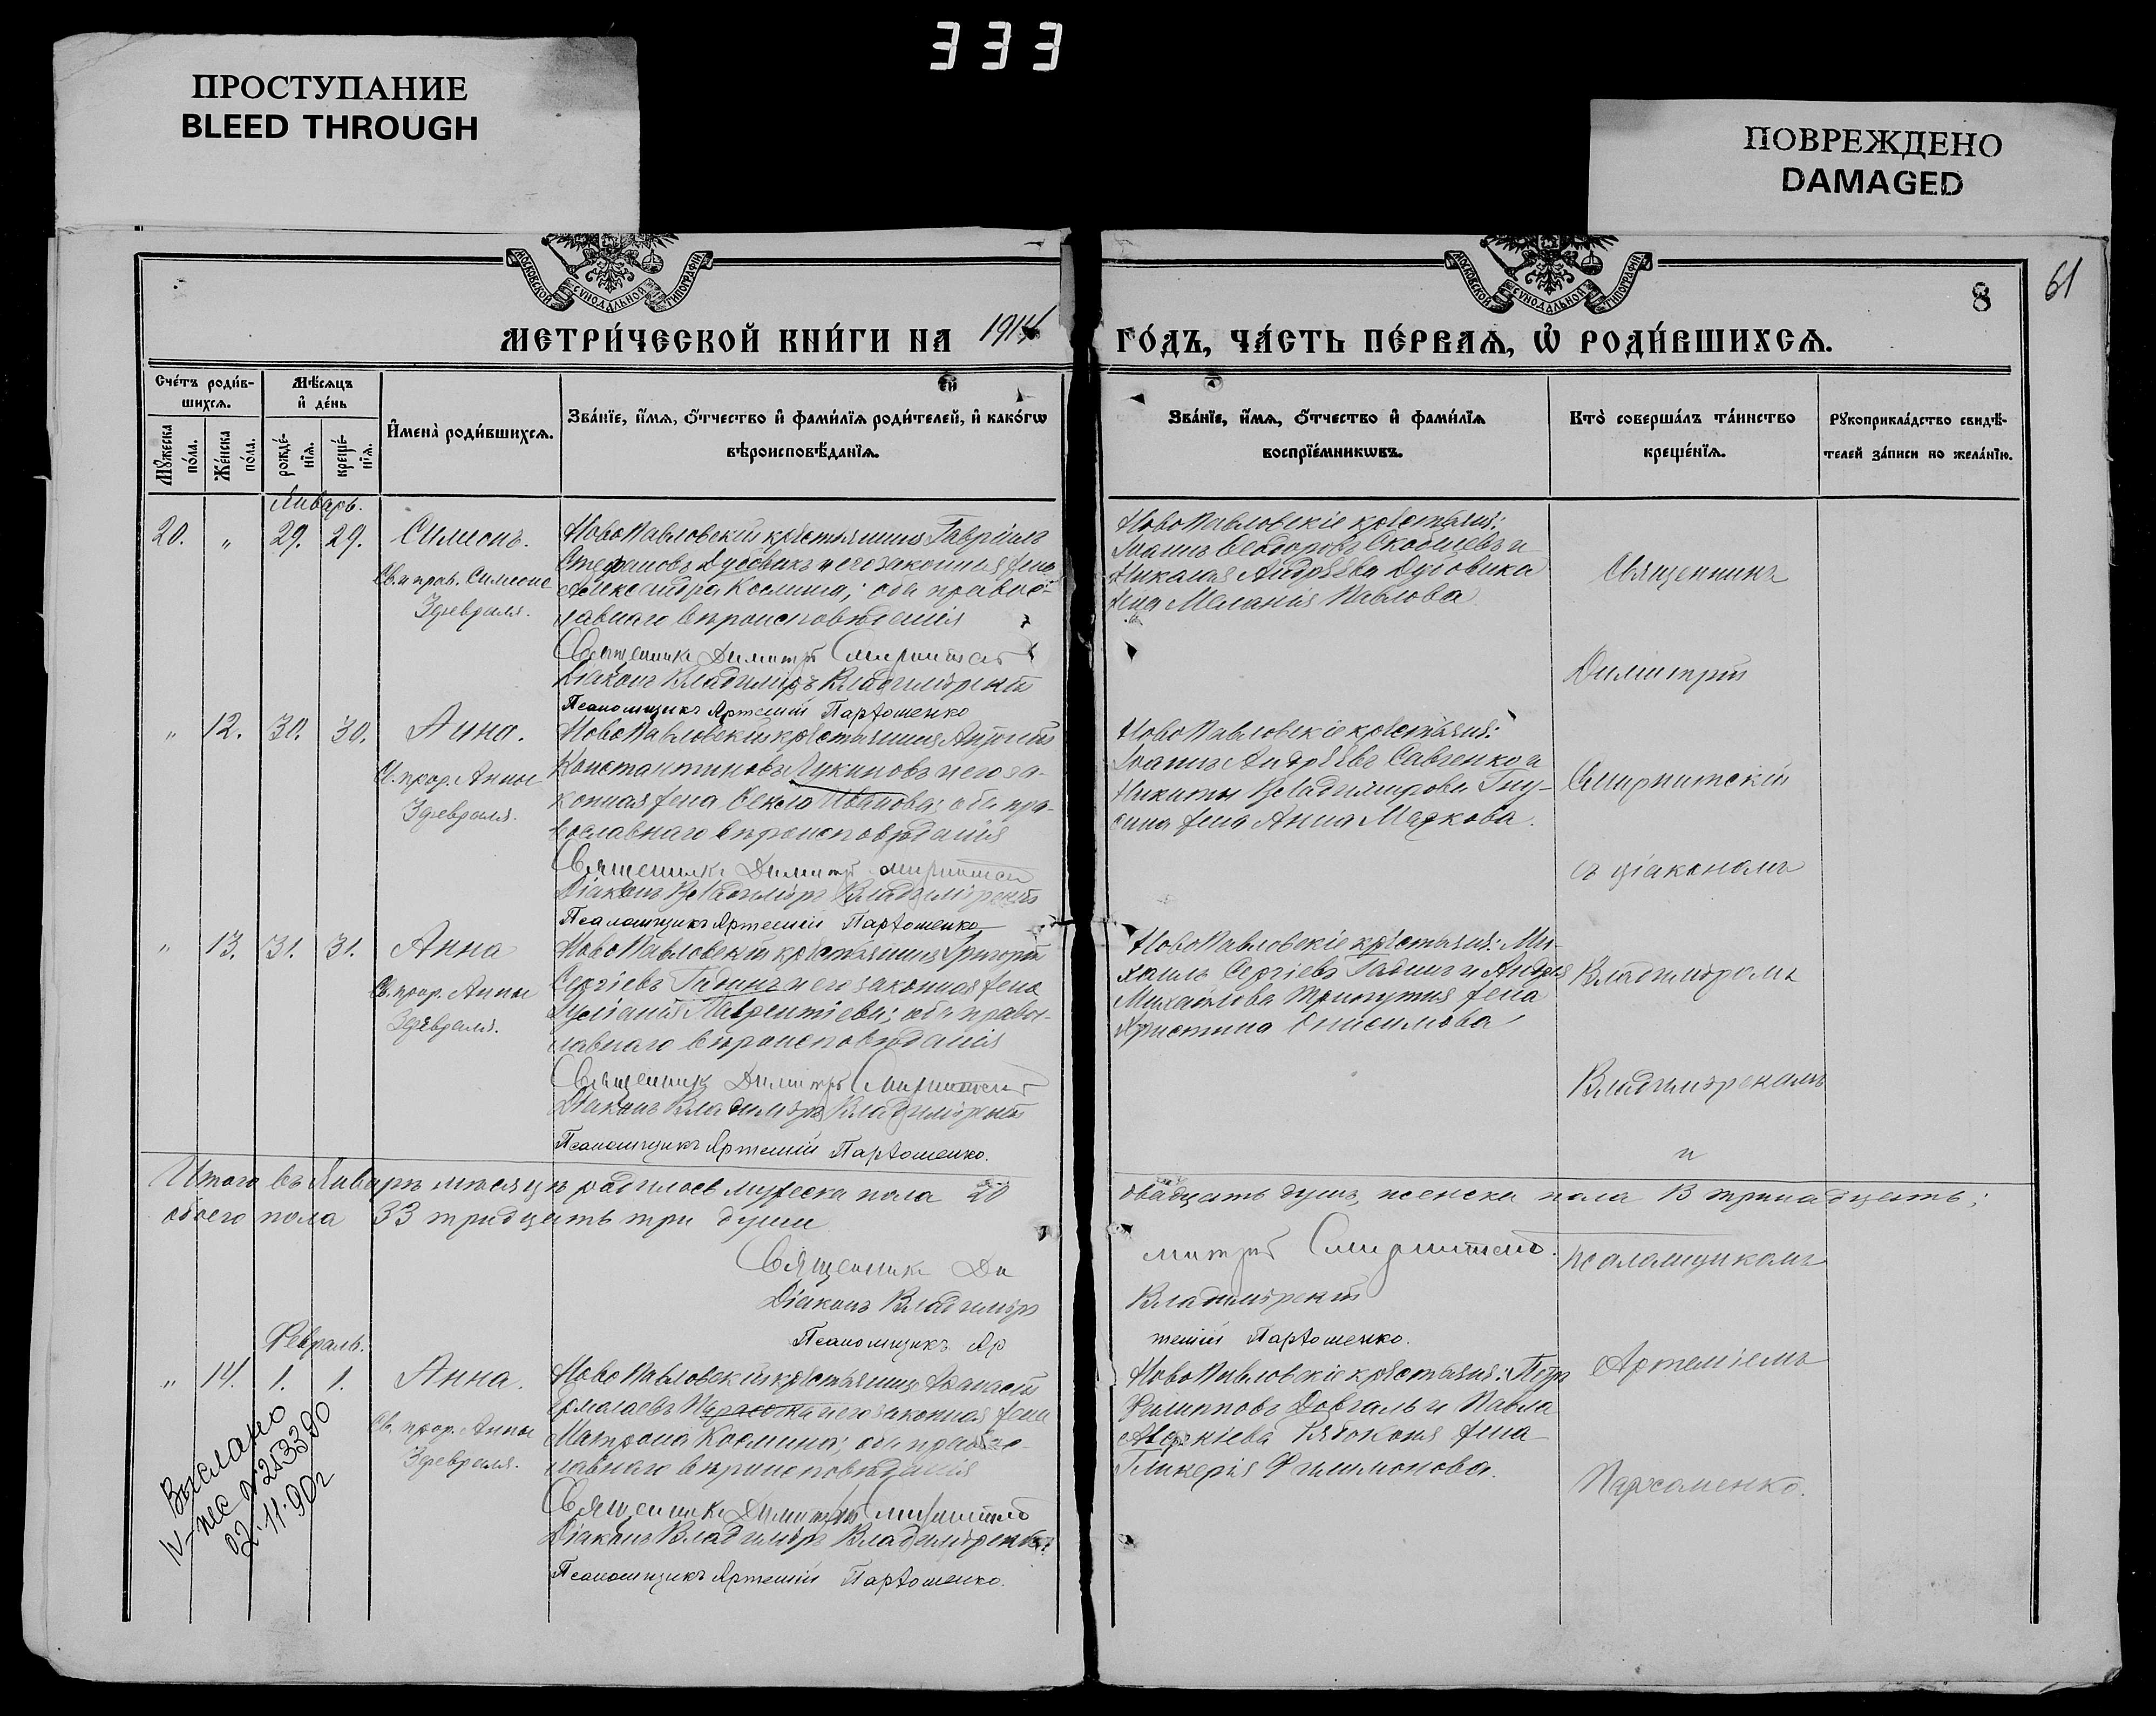 333
ПРОСТУПАНИЕ
BLEED THROUGH
ПОВРЕЖДЕНО
DAMAGED
МОСКОВСКОЙ СѴНОДАЛЬНОЙ ТИПОГРАФІИ
МОСКОВСКОЙ СѴНОДАЛЬНОЙ ТИПОГРАФІИ
8
61
МЕТРИ́ЧЕСКОЙ КНИ́ГИ НА 1914 ГО́ДЪ, ЧА́СТЬ ПЕ́РВАѦ, Ѡ҆ РОДИ́ВШИХСѦ.
Сче́тъ роди́вшихсѧ.
Мꙋ́жеска по́ла.
Же́нска по́ла.
Мѣ́сѧцъ и҆ де́нь
рожде́нїѧ.
креще́нїѧ.
И҆мена̀ роди́вшихсѧ.
Зва́нїе, и҆́мѧ, ѻ҆́тчество и҆ фами́лїѧ роди́телей, и҆ како́гѡ
вѣроисповѣ́данїѧ.
Зва́нїе, и҆́мѧ, ѻ҆́тчество и҆ фами́лїѧ
воспрїе́мникѡвъ.
Кто̀ соверша́лъ та́инство
креще́нїѧ.
Рꙋкоприкла́дство свидѣ́-
телей за́писи по жела́нїю.
Январь.
20. „ 29. 29. Симеонъ.
Св. и прав. Симеона
3 февраля.
Новопавловскій крестьянинъ Гавріилъ
Стефановъ Дубовикъ и его законная жена
Александра Космина; оба правос-
лавнаго вѣроисповѣданія
Священникъ Димитрій Смирнитскій
Діаконъ Владиміръ Владимірскій
Псаломщикъ Артемій Пархоменко
Новопавловскіе крестьяне:
Іоаннъ Ѳеодоровъ и
Николая Андрѣева Дубовика
жена Меланія Павлова
„ 12. 30. 30. Анна.
Св. прор. Анны
3 февраля.
Новопавловскій крестьянинъ
Константиновъ Лукиновъ и его за-
конная жена Ѳекла Иванова; оба пра-
вославнаго вѣроисповѣданія
Священникъ Димитрій Смирнитскій
Діаконъ Владиміръ Владимірскій
Псаломщикъ Артемій Пархоменко
Новопавловскіе крестьяне:
Іоаннъ Андрѣевъ Савченко и
Никиты Владимірова
жена Анна Маркова.
„ 13. 31. 31. Анна
Св. прор. Анны
3 февраля.
Новопавловскій крестьянинъ Григорій
Сергіевъ Гадинъ и его законная жена
Лаврентіева; оба правос-
лавнаго вѣроисповѣданія
Священникъ Димитрій Смирнитскій
Діаконъ Владиміръ Владимірскій
Псаломщикъ Артемій Пархоменко.
Новопавловскіе крестьяне: Ми-
хаилъ Сергіевъ Гадинъ и Андрея
Михайлова жена
Христина Онисимова
Итого въ Январѣ мѣсяцѣ родилось мужеска пола 20 двадцать душъ, женска пола 13 тринадцать;
обоего пола 33 тридцать три души
Священникъ Димитрій Смирнитскій.
Діаконъ Владиміръ Владимірскій
Псаломщикъ Артемій Пархоменко.
Февраль.
„ 14. 1. 1. Анна.
Св. прор. Анны
3 февраля.
Новопавловскій крестьянинъ Аѳанасій
Ермолаевъ и его законная жена
Матрона Космина; оба правос-
лавнаго вѣроисповѣданія
Священникъ Димитрій Смирнитскій
Діаконъ Владиміръ Владимірскій
Псаломщикъ Артемій Пархоменко.
Новопавловскіе крестьяне: Петръ
Филипповъ Довгаль и Павла
Рябоконя жена
Гликерія Филимонова.
Священникъ
Димитрій
Смирнитскій
съ діакономъ
Владиміромъ
Владимірскимъ
и
псаломщикомъ
Артеміемъ
Пархоменко.
Выслано
IV-ПС № 253390
02.11.90г